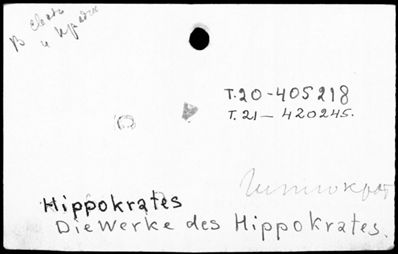 В
и
Т.20-405218
Т.21-420245.
Гиппократ
Hippokrates
Die Werke des Hippokrates.